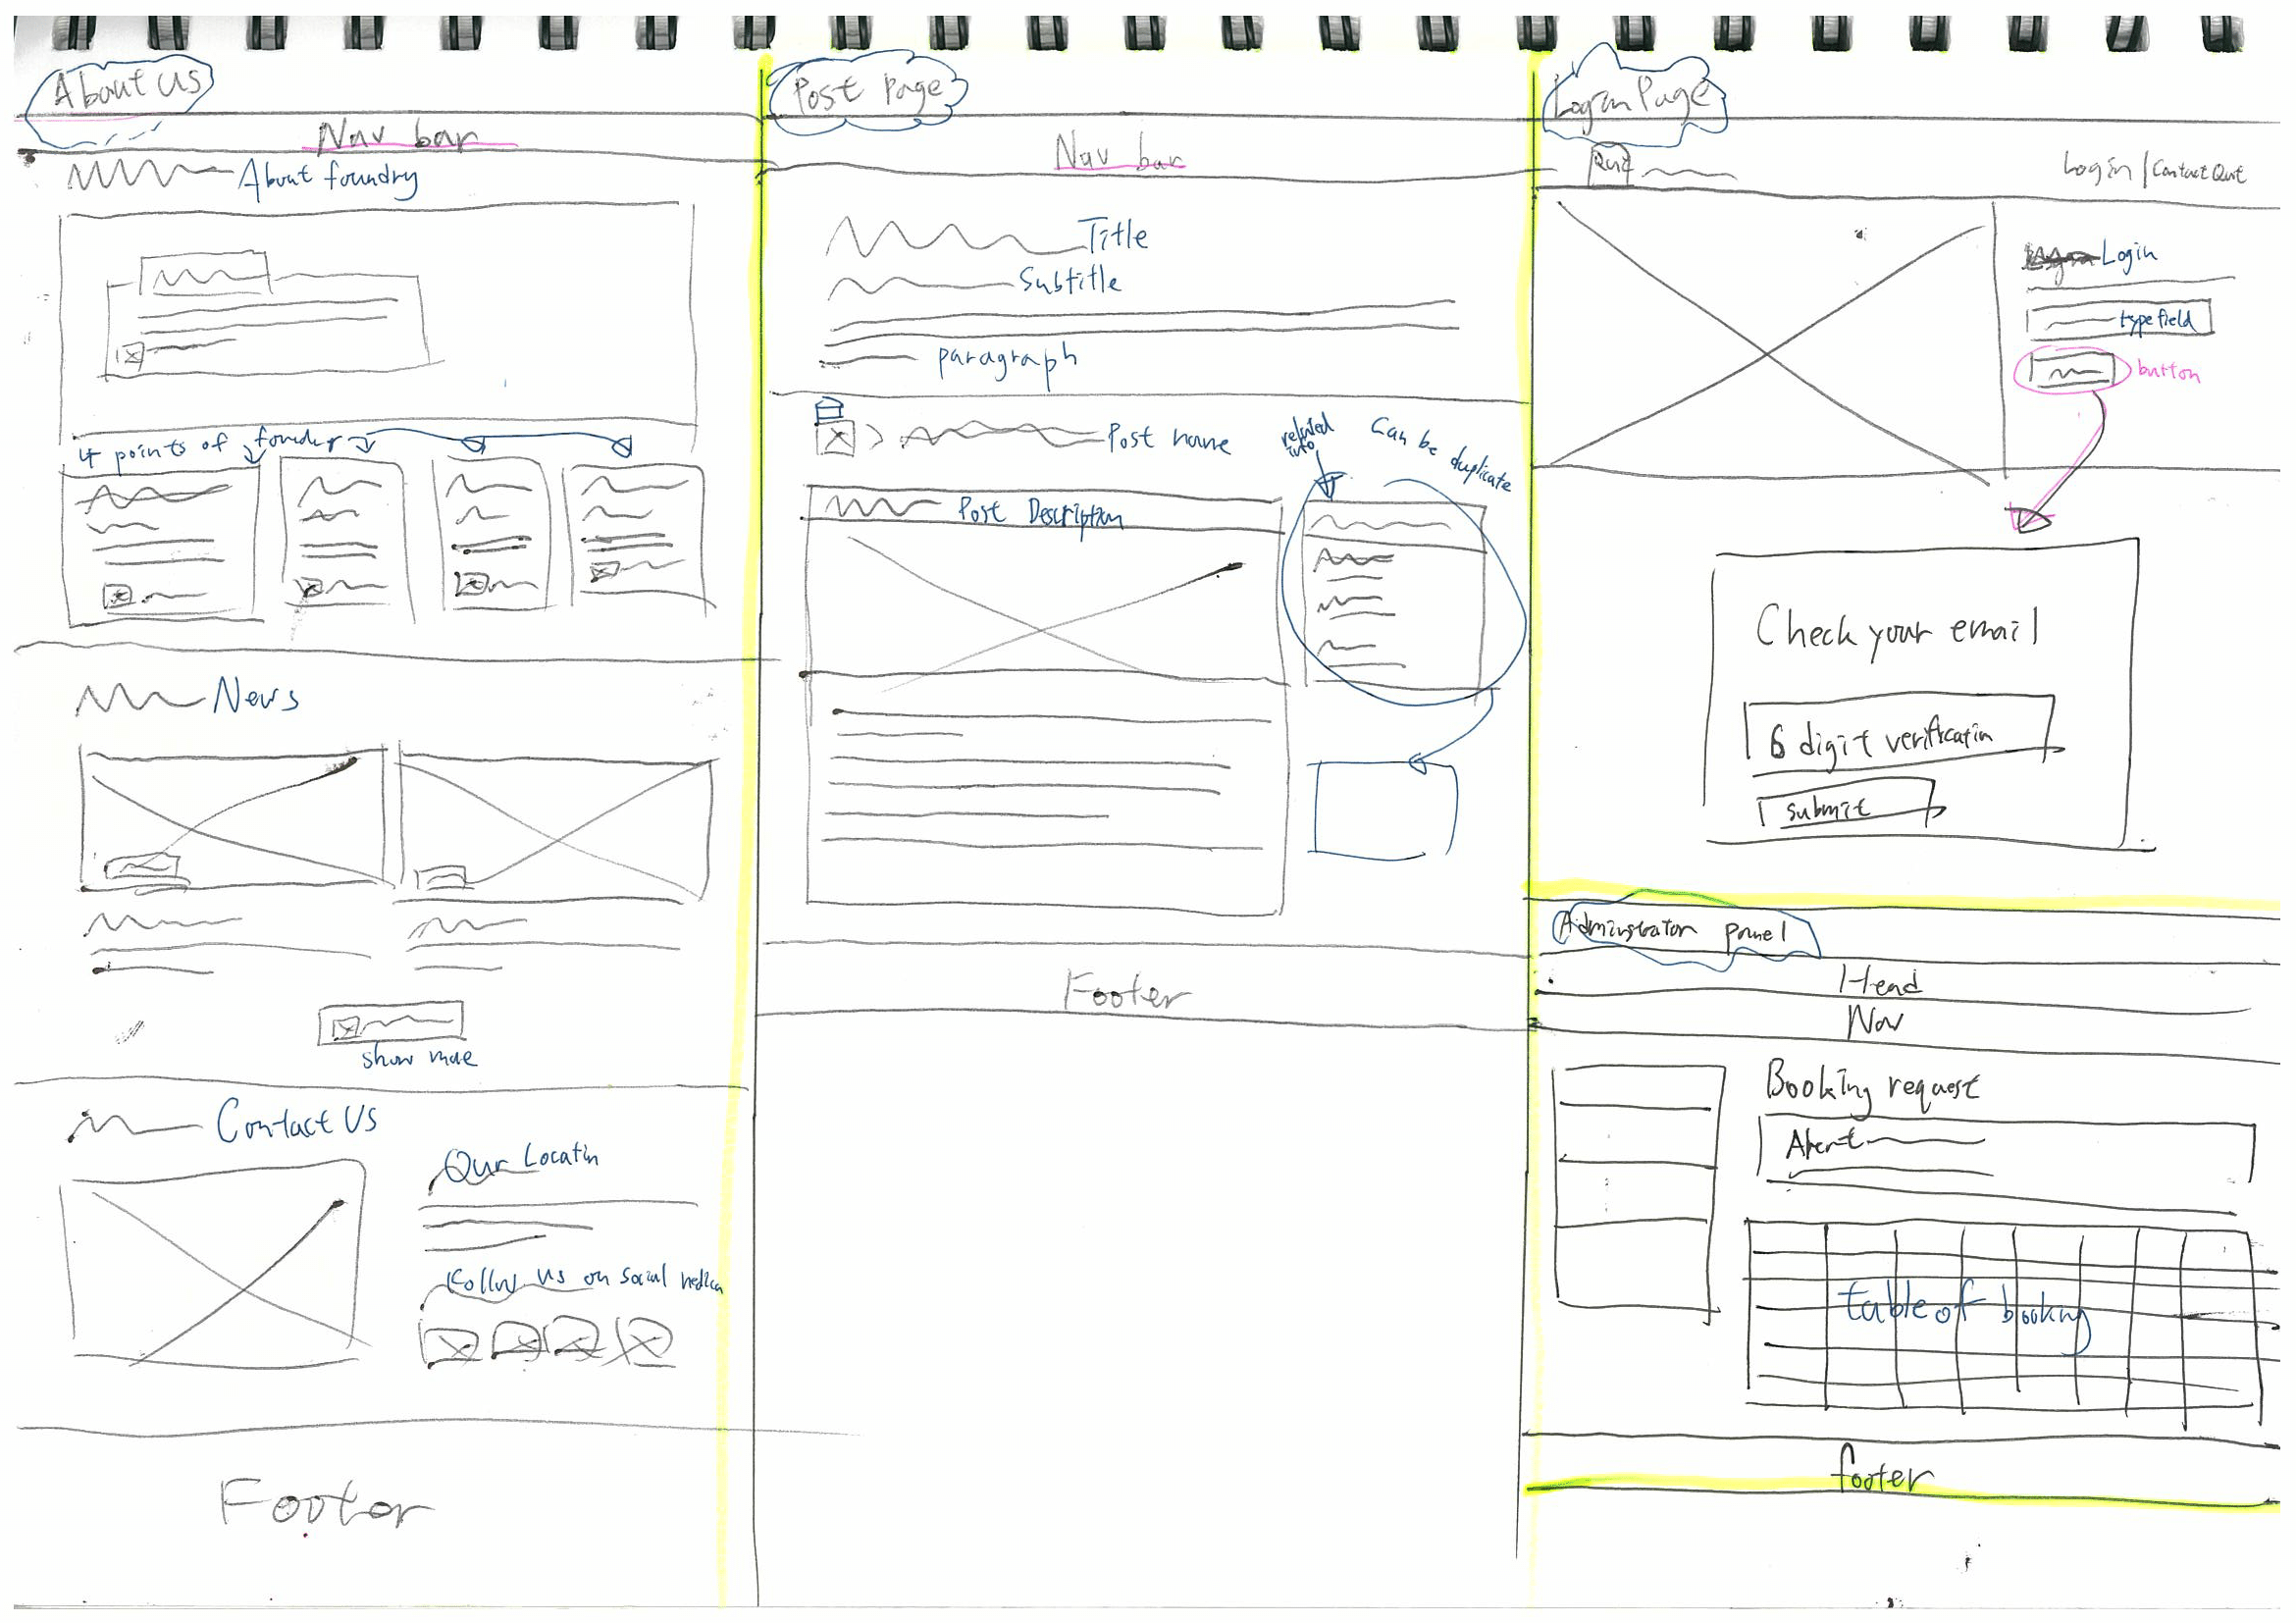 About Us
Nav bar
About foundry
4 points of foundry
News
show more
Contact Us
Our Location
Follow us on social media
Footer
Post Page
Nav bar
Title
Subtitle
paragraph
Post name
related
info
Can be duplicate
Post Description
Footer
Login Page
Quit
Login / Contact Quit
Login
type field
button
Check your email
6 digit verification
submit
Administrator panel
Head
Nav
Booking request
table of booking
footer